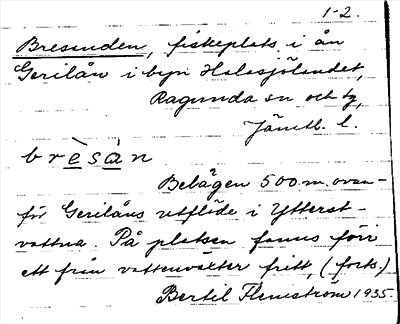 1-2.
Bresanden, fiskeplats i ån
Gerilån i byn Halasjölandet,
Ragunda sn och tg,
Jämtl. l.
brèsàn
Belägen 500 m. ovan-
för Gerilåns utflöde i Ytterst-
vattna. På platsen fanns förr
ett från vattenväxter fritt, (forts.)
Bertil Flemström 1935.